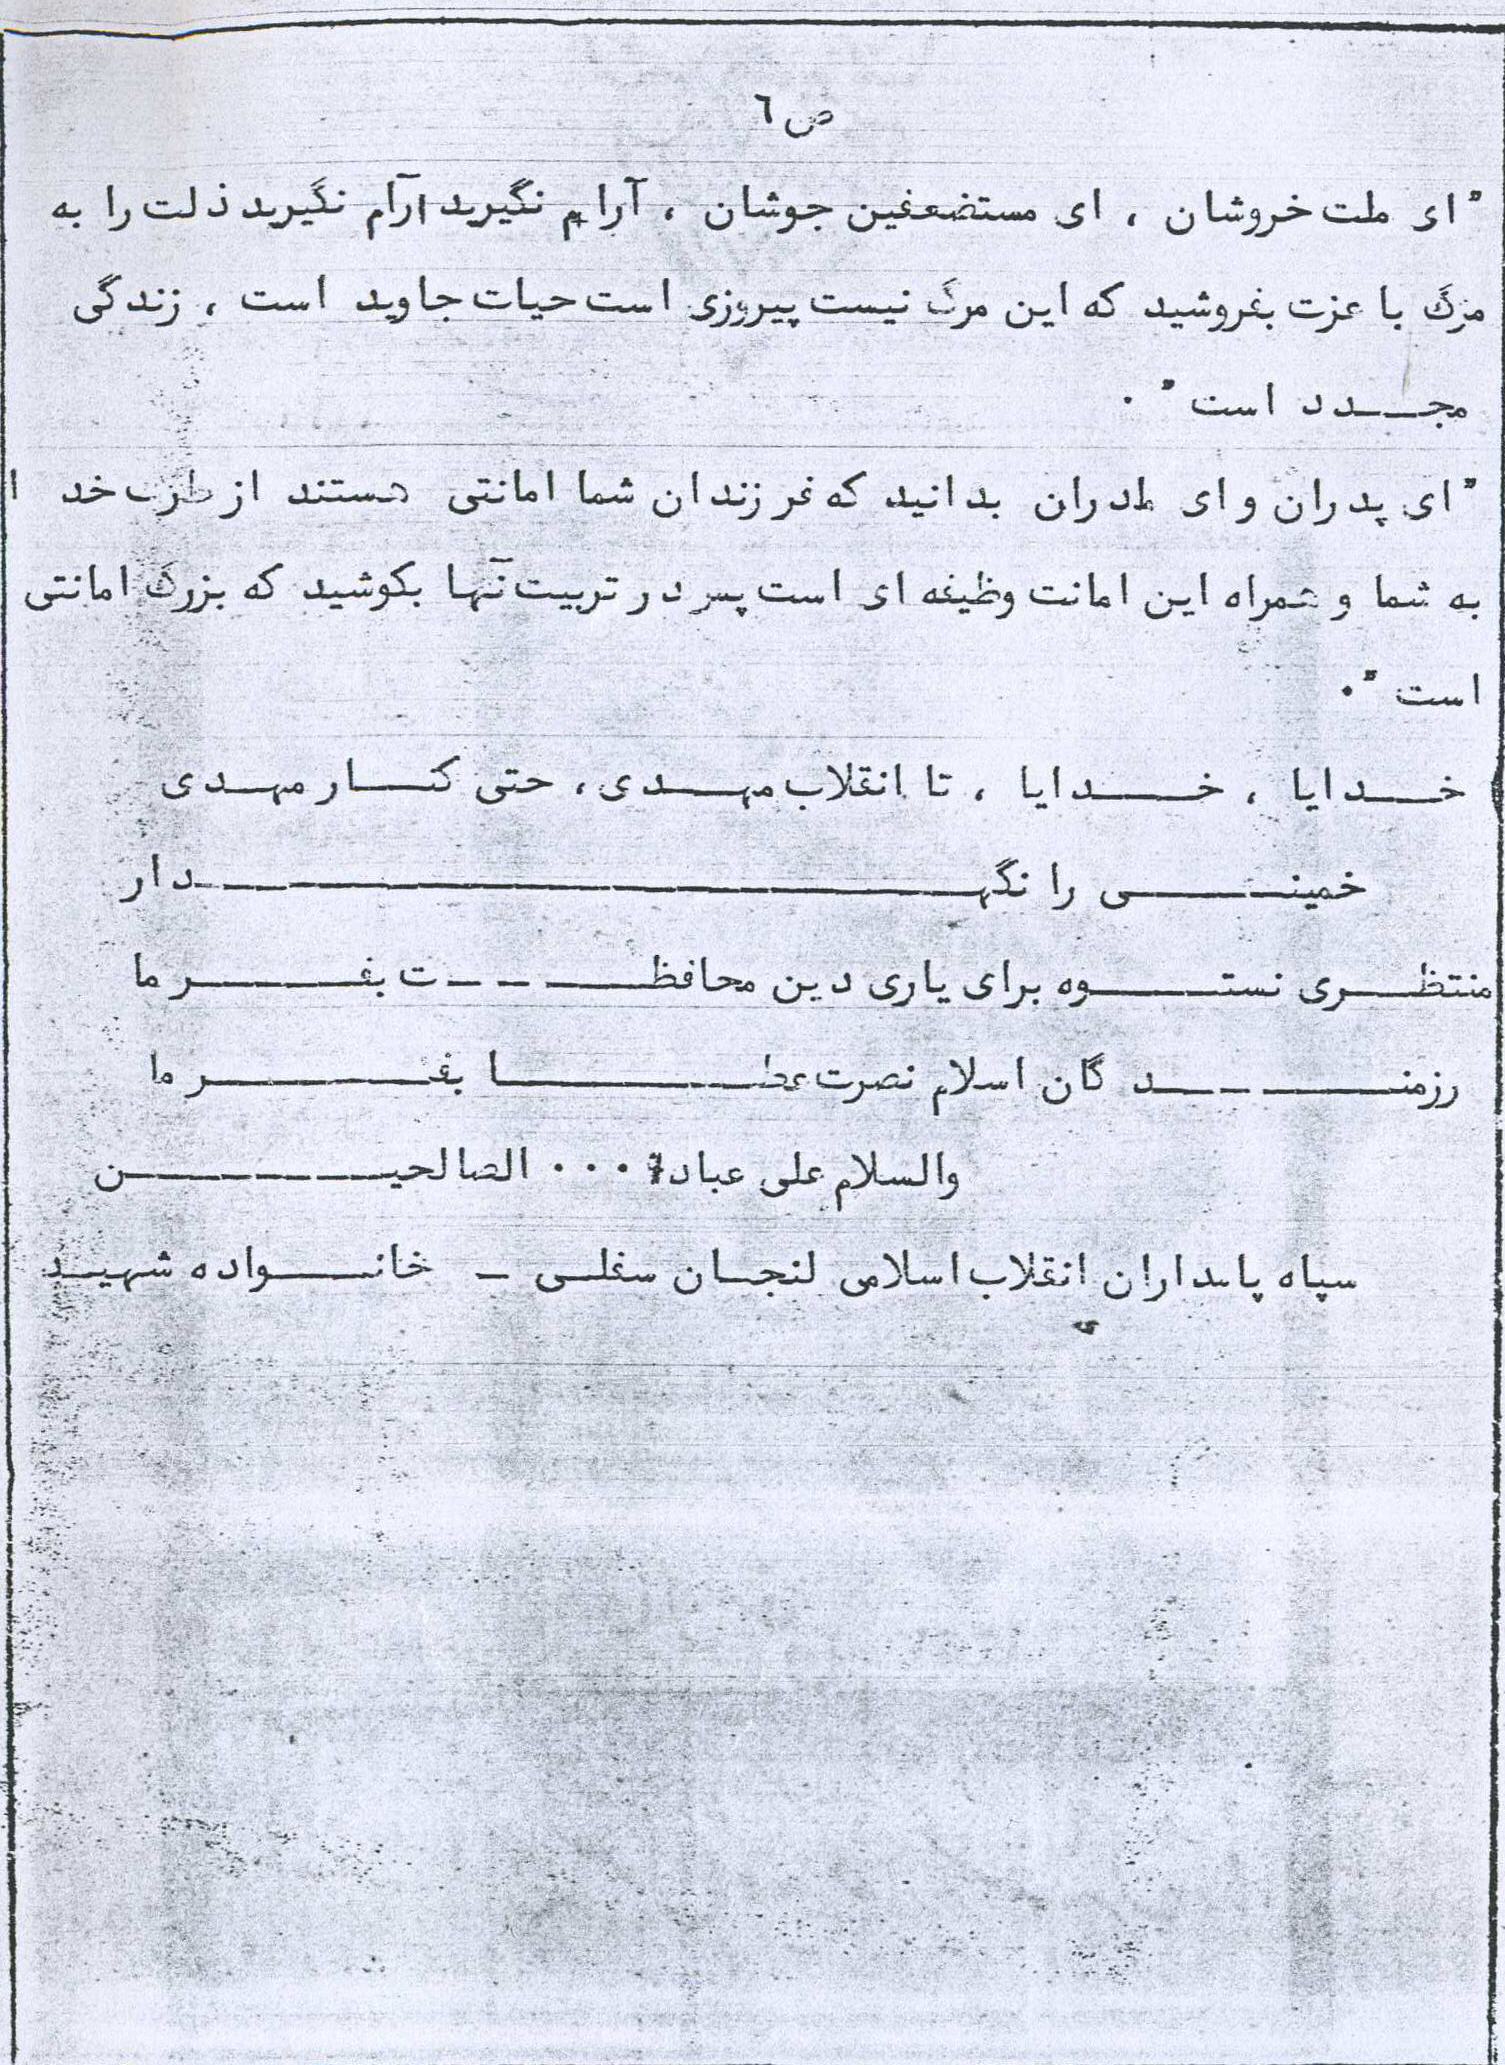 ص ٦
"ای ملت خروشان ، ای مستضعفین جوشان ، آرام نگیرید آرام نگیرید ذلت را به
مرگ با عزت بفروشید که این مرگ نیست پیروزی است حیات جاوید است ، زندگی
مجـــدد است" .
"ای پدران و ای مادران بدانید که فرزندان شما امانتی هستند از طرف خدا
به شما و همراه این امانت وظیفه ای است پس در تربیت آنها بکوشید که بزرگ امانتی
است" .
خـــدایا ، خـــدایا ، تا انقلاب مهـــدی ، حتی کنـــار مهـــدی
خمینـــی را نگهـــدار
منتظـــری نستـــوه برای یاری دین محافظـــت بفـــرما
رزمنـــدگان اسلام نصرت عطـــا بفـــرما
والسلام علی عباد ا... الصالحیـــن
سپاه پاسداران انقلاب اسلامی لنجـان سفلـی - خانـــواده شهیـد